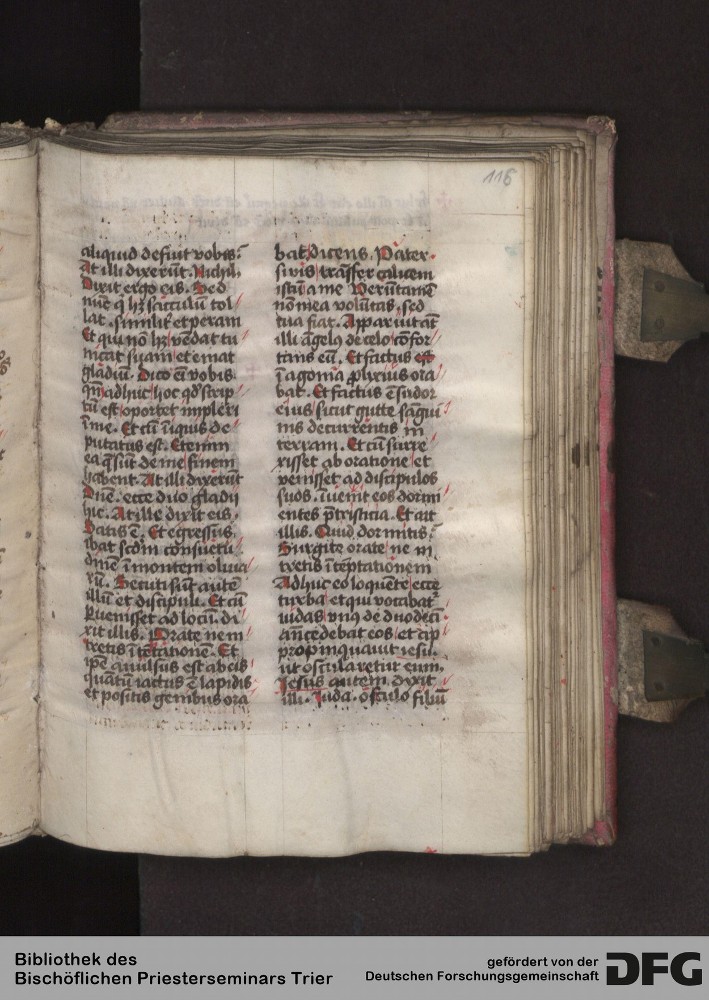 116
aliquid defuit vobis.
At illi dixerūt. Nichil.
Dixit ergo eis. Sed
nūc q̄ hꝫ sacculū tol
lat. similit̾ et peram
Et qui nō hꝫ vēdat tu
nicā suam et emat
gladiū. Dico eī vobis.
qm̄ adhuc hoc qđ scrip
tū est oportet impleri
ī me. Et cū īiquis de
putatus est. Etenim
ea q̄ sūt de me finem
habent. At illi dixerūt
Dn̄e. ecce duo gladii
hic. At ille dixit eis.
Satis ē. Et egressus
ibat scd̄m consuetu
dinē ī montem oliua
rū. Secuti sūt autē
illū et discipuli. Et cū
ꝑuenisset ad locū. di
xit illis. Orate ne in
tretis ī tētationē. Et
ip̄e auulsus est ab eis
quātū iactus ē lapidis
et positis genibus ora
bat dicens. Pater
si vis trāsfer calicem
istū a me Verūtamē
nō mea volūtas. sed
tua fiat. Apparuit āt
illi āgelꝰ de celo cōfor
tans eū. Et factus est
ī agonia ꝓlixius ora
bat. Et factus ē sudor
eius sicut gutte sāgui
nis decurrentis in
terram. Et cū surre
xisset ab oratione et
venisset ad discipulos
suos. īuenit eos dormi
entes p̄ tristicia. Et ait
illis. Quid dormitis?
Surgite orate ne in
tretis ī tēptationem
Adhuc eo loquēte ecce
turba et qui vocabat̾
iudas vnꝰ de duodeci
āncedebat eos et ap
propinquauit iesu.
ut oscularetur eum.
Iesus autem dixit
illi. Iuda. osculo filiū
Bibliothek des
Bischöflichen Priesterseminars Trier
gefördert von der
Deutschen Forschungsgemeinschaft
DFG